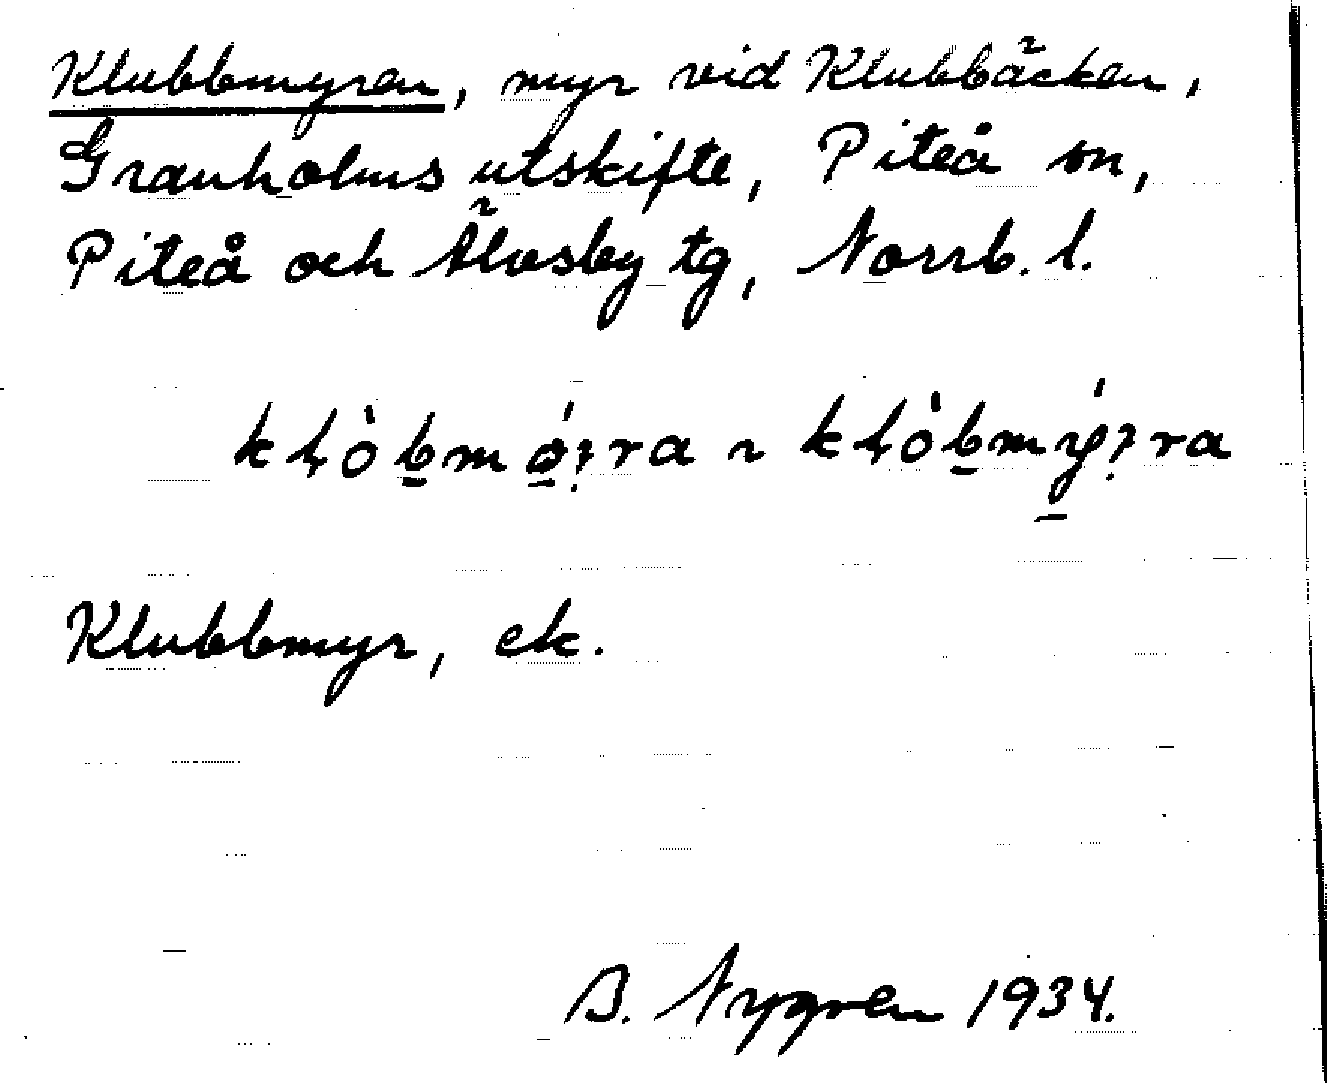 Klubbmyren, myr vid Klubbäcken,
Granholms utskifte, Piteå sn,
Piteå och Älvsby tg, Norrb. l.
Klubbmyr, ek.
B. Nygren 1934.